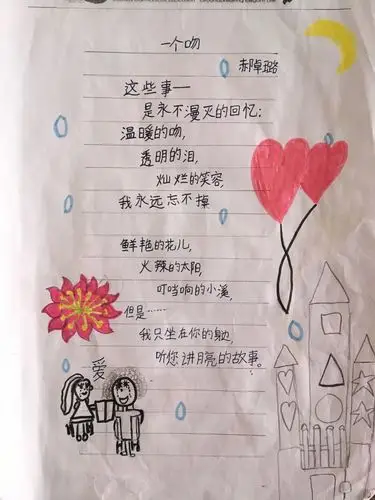 一个吻
赤焯璐
这些事——
是永不漫灭的回忆：
温暖的吻，
透明的泪，
灿烂的笑容，
我永远忘不掉
鲜艳的花儿，
火辣的太阳，
叮当响的小溪，
但是……
我只坐在你的身边，
听您讲月亮的故事。
爱